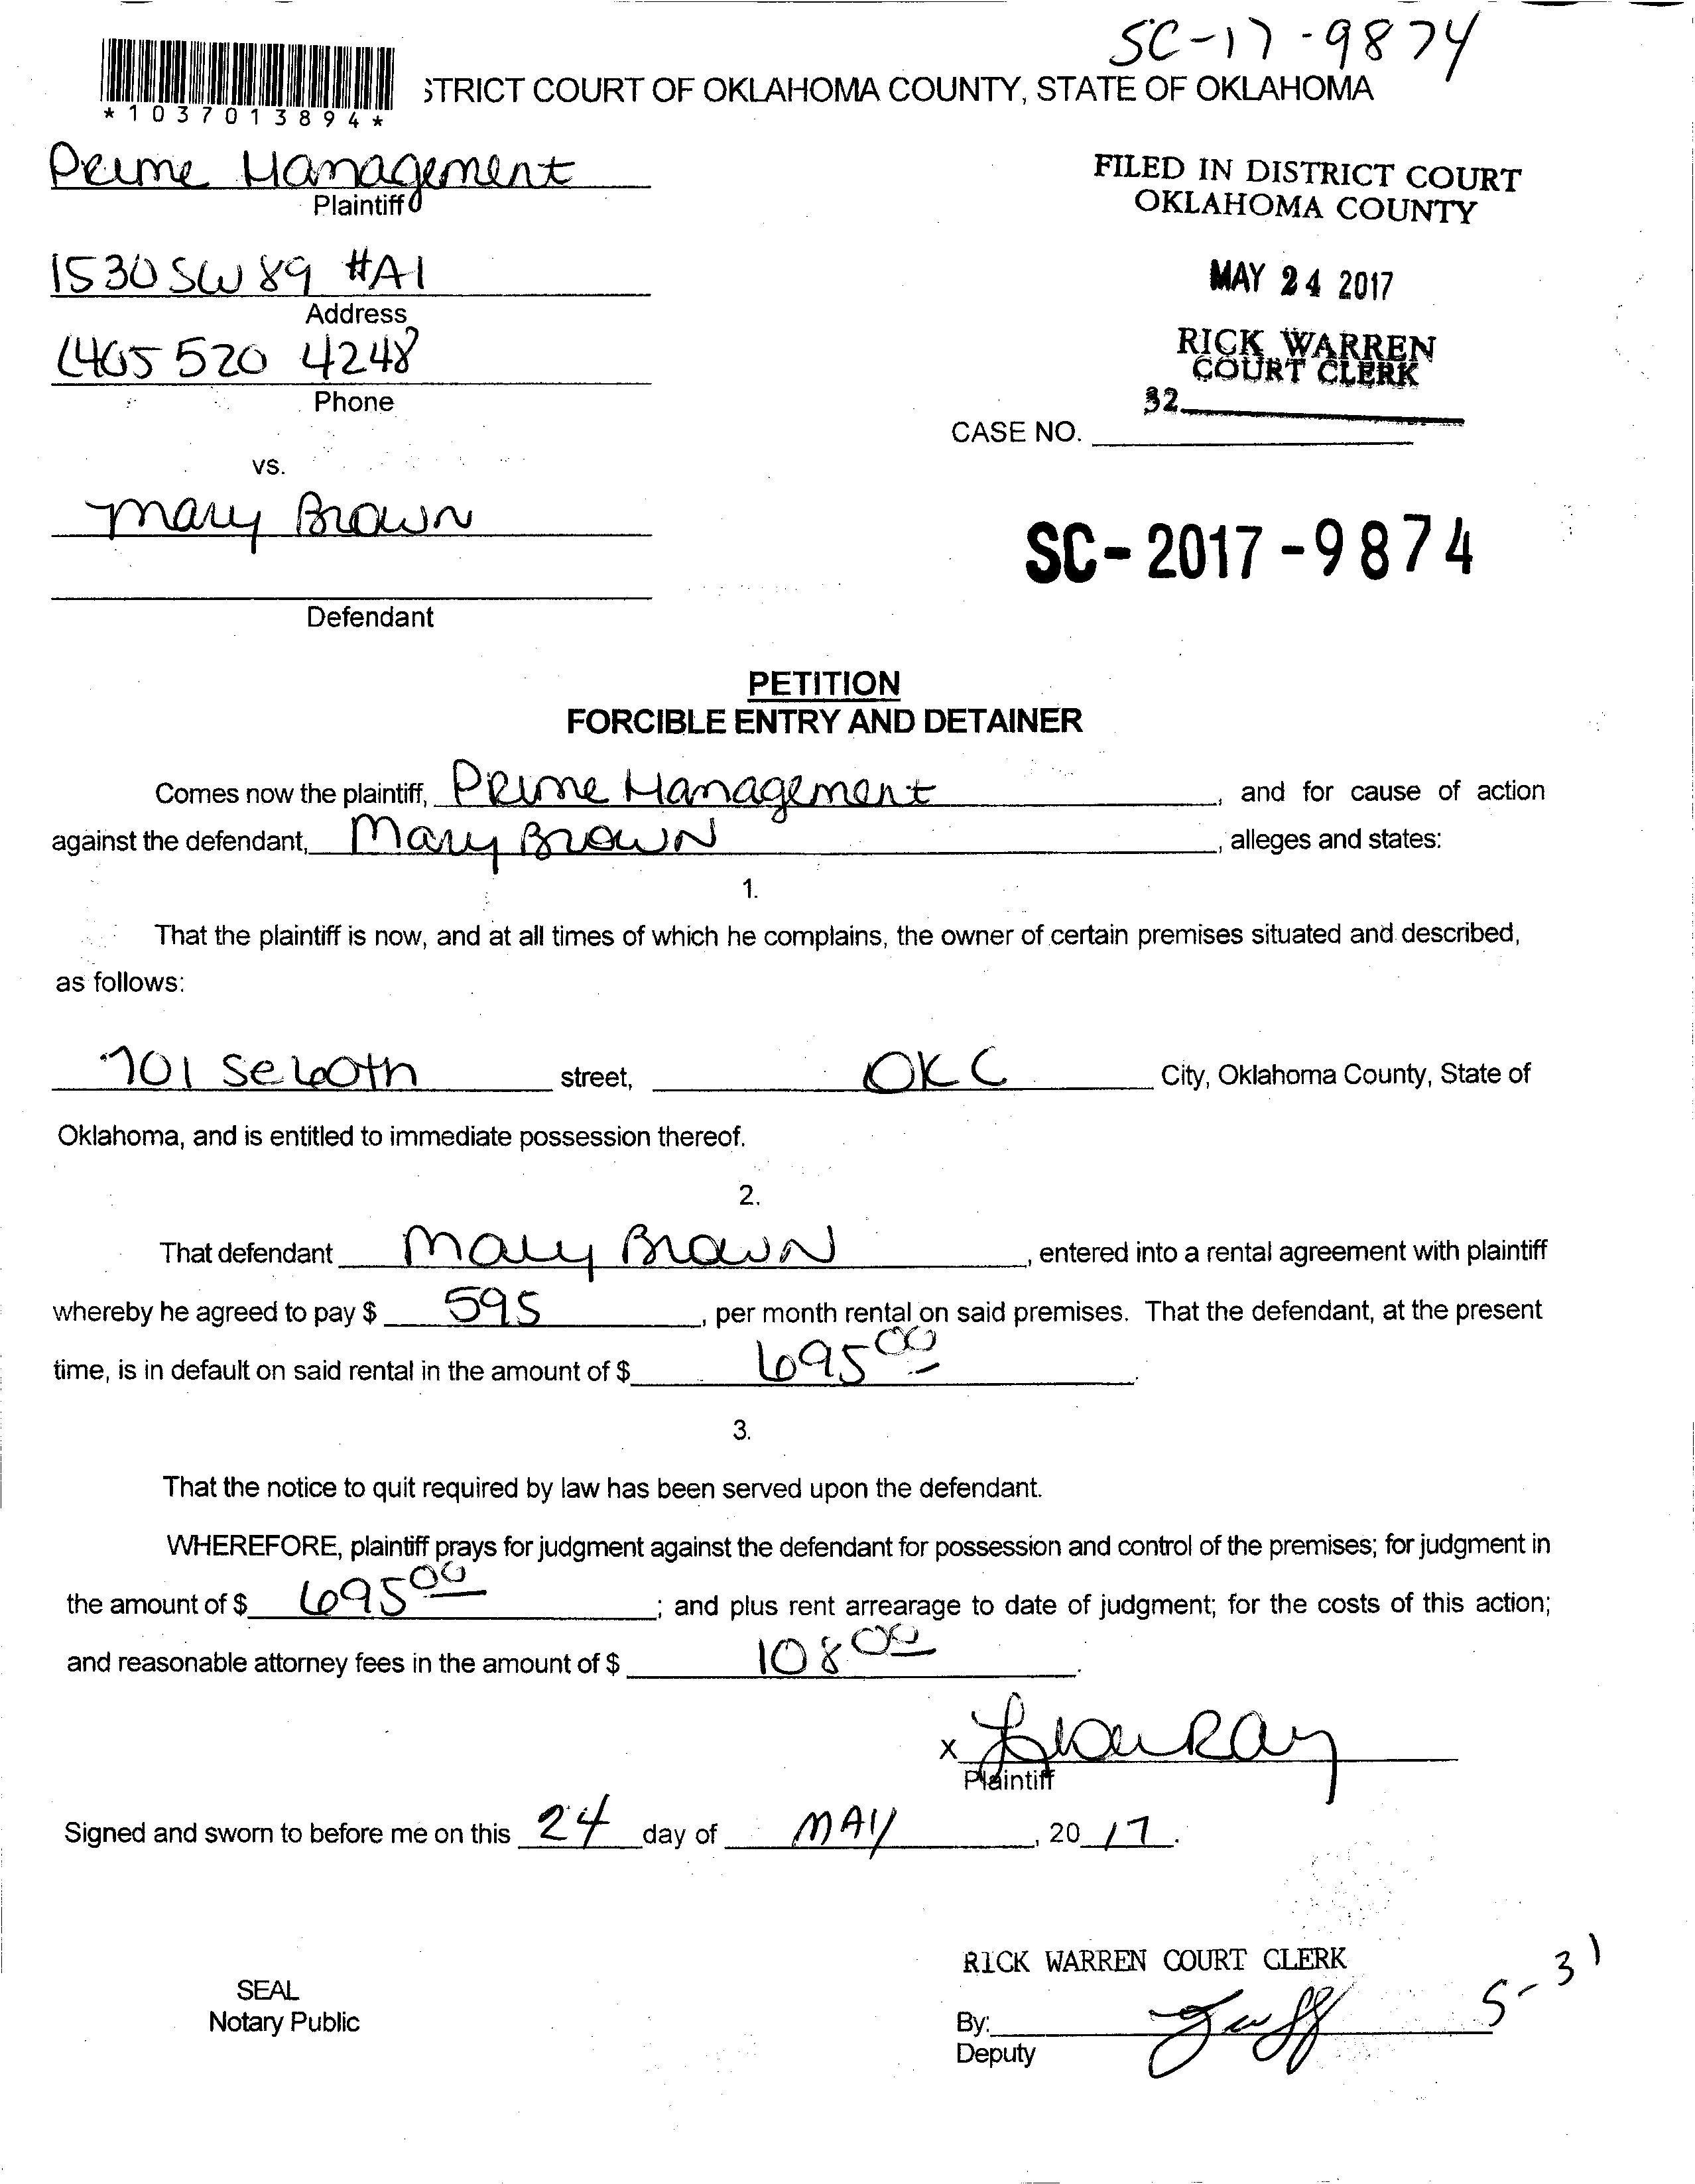 SC-17-9874
STRICT COURT OF OKLAHOMA COUNTY, STATE OF OKLAHOMA
*1037013894*
Prime Management
Plaintiff
FILED IN DISTRICT COURT
OKLAHOMA COUNTY
1530 SW 89 #A1
Address
MAY 24 2017
405 520 4248
Phone
RICK WARREN
COURT CLERK
32
CASE NO.
vs.
Mary Brown
SC-2017-9874
Defendant
PETITION
FORCIBLE ENTRY AND DETAINER
Comes now the plaintiff, Prime Management, and for cause of action
against the defendant, Mary Brown, alleges and states:
1.
That the plaintiff is now, and at all times of which he complains, the owner of certain premises situated and described,
as follows:
701 SE 60th street, OKC City, Oklahoma County, State of
Oklahoma, and is entitled to immediate possession thereof.
2.
That defendant Mary Brown, entered into a rental agreement with plaintiff
whereby he agreed to pay $ 595, per month rental on said premises. That the defendant, at the present
time, is in default on said rental in the amount of $ 695 00.
3.
That the notice to quit required by law has been served upon the defendant.
WHEREFORE, plaintiff prays for judgment against the defendant for possession and control of the premises; for judgment in
the amount of $ 695 00; and plus rent arrearage to date of judgment; for the costs of this action;
and reasonable attorney fees in the amount of $ 108 00.
x
Plaintiff
Signed and sworn to before me on this 24 day of MAY, 20 17.
RICK WARREN COURT CLERK
5-31
SEAL
Notary Public
By:
Deputy